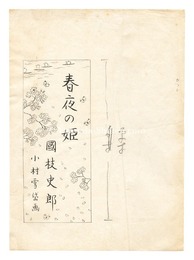 春夜の姫
國枝史郎
小村雪岱画